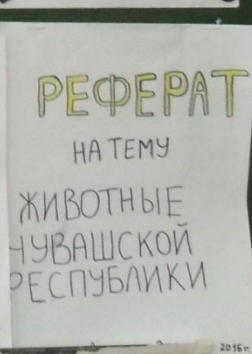 РЕФЕРАТ
НА ТЕМУ
ЖИВОТНЫЕ
ЧУВАШСКОЙ
РЕСПУБЛИКИ
2015 г.